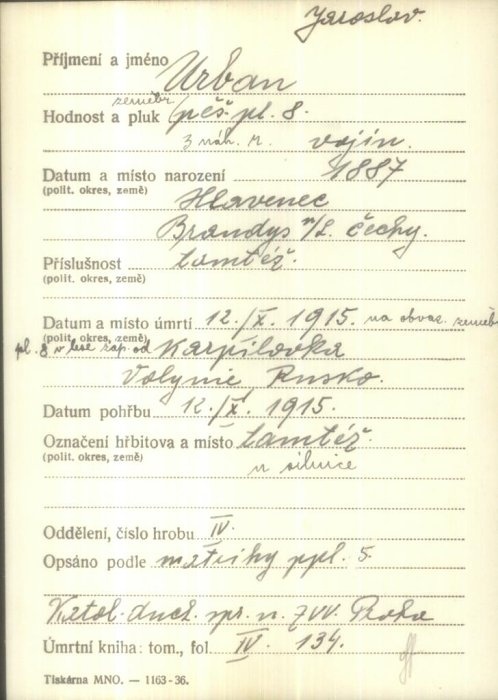 Jaroslav.
Příjmení a jméno Urban
zeměbr.
Hodnost a pluk pěš. pl. 8.
3 náh. vojín.
Datum a místo narození 1887
(polit. okres, země) Hlavenec
Brandys n/L. Čechy.
Příslušnost tamtéž.
(polit. okres, země)
Datum a místo úmrtí 12./X. 1915. na obvaz. zeměbr
(polit. okres, země)
pl. 8 v lese záp. od Karpilovka
Volynie, Rusko.
Datum pohřbu 12./X. 1915.
Označení hřbitova a místo tamtéž.
(polit. okres, země) u silnice
Oddělení, číslo hrobu IV.
Opsáno podle matriky ppl. 5.
Katol. duch. spr. n. ZVV. Praha
Úmrtní kniha: tom., fol. IV. 134.
Tiskárna MNO. — 1163-36.